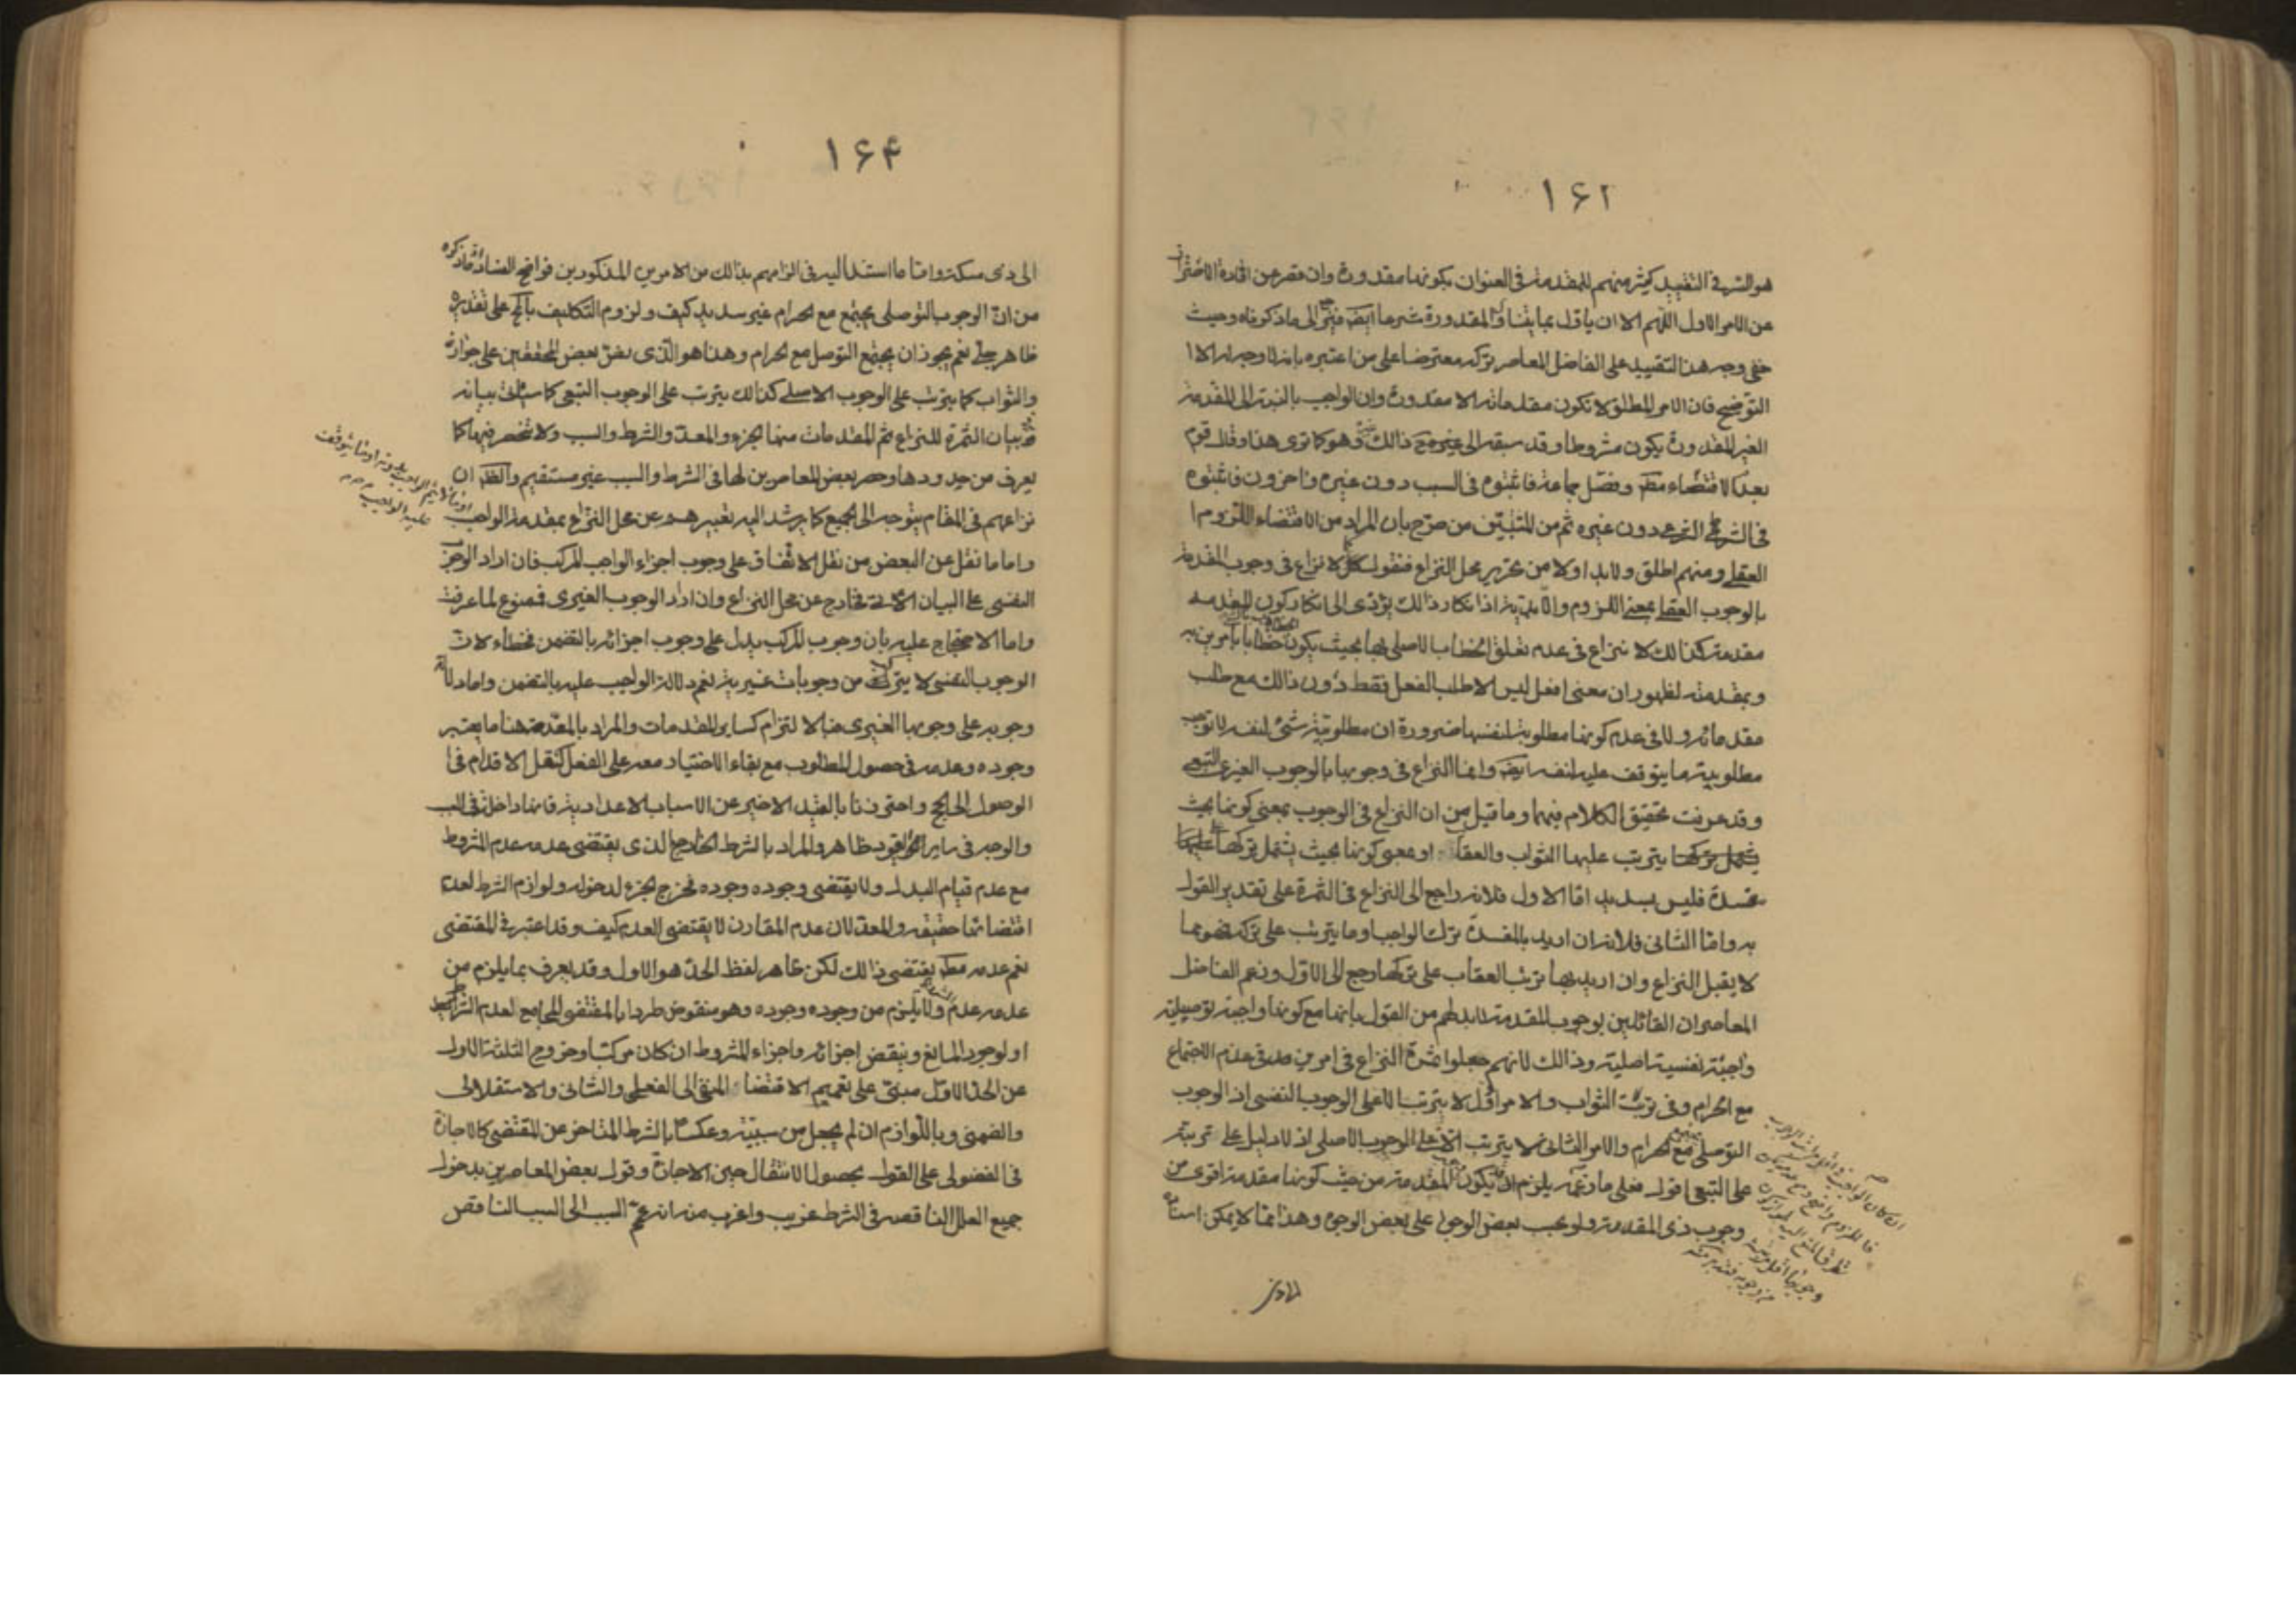 ١۶٢
هو السر في التقييد كثير منهم للمقدمة في العنوان بكونها مقدورة وان قصر عن افادة الاحتراز
عن الامر الاول اللهم الا ان ياول بما يتناول المقدورة شرعا ايضا فيرجع الى ما ذكرناه وحيث
خفي وجه هذا التقييد على الفاضل المعاصر تركه معترضا على من اعتبره بانه لا وجه له الا
التوضيح فان الامر المطلق لا تكون مقدماته الا مقدورة وان الواجب بالنسبة الى المقدمة
الغير المقدورة يكون مشروطا وقد سبقه الى غيره ذلك وهو كما ترى هذا وقال قوم
بعدم الاقتضاء مطلقا وفصل جماعة فاثبتوه في السبب دون غيره واخرون فاثبتوه
في الشرط الشرعي دون غيره ثم من المثبتين من صرح بان المراد من الاقتضاء اللزوم
العقلي ومنهم اطلق ولابد اولا من تحرير محل النزاع فنقول لا نزاع في وجوب المقدمة
بالوجوب العقلي بمعنى اللزوم واللابدية اذ انكار ذلك يؤدى الى انكار كون المقدمة
مقدمة كذلك لا نزاع في عدم تعلق الخطاب الاصلي بها بحيث يكون الخطاب خطابا بامرين به
وبمقدمته لظهور ان معنى افعل ليس الا طلب الفعل فقط دون ذلك مع طلب
مقدماته ولا في عدم كونها مطلوبة لنفسها ضرورة ان مطلوبية شئ لنفسه لا توجب
مطلوبية ما يتوقف عليه لنفسه ايضا وانما النزاع في وجوبها بالوجوب الغيري التبعي
وقد عرفت تحقيق الكلام فيهما وما قيل من ان النزاع في الوجوب بمعنى كونها بحيث
يترتب عليها الثواب والعقاب او بمعنى كونها بحيث يشتمل تركها على
مفسدة فليس بسديد اما الاول فلانه راجع الى النزاع في الثمرة على تقدير القول
به واما الثاني فلانه ان اريد بالمفسدة ترك الواجب وما يترتب على تركه فهو مما
لا يقبل النزاع وان اريد بها ترتب العقاب على تركها رجع الى الاول وزعم الفاضل
المعاصر ان القائلين بوجوب المقدمة لابد لهم من القول بانها مع كونها واجبة توصيلية
واجبة نفسية اصلية وذلك لانهم جعلوا ثمرة النزاع في امرين في عدم الاجتماع
مع الحرام وفي ترتب الثواب والامر الاول لا يترتب الا على الوجوب النفسي اذ الوجوب
التوصلي يجتمع مع الحرام والامر الثاني مما لا يترتب الا على الوجوب الاصلي اذ لا دليل على ترتبه
على التبعي اقول فعلى ما زعمه يلزم ان يكون وجوب المقدمة من حيث كونها مقدمة اقوى من
وجوب ذي المقدمة ولو بحسب بعض الوجوه على بعض الوجوه وهذا مما لا يمكن اسناده
١۶۴
الى ذي مسكة واما ما استند اليه في الزامهم بذلك من الامرين المذكورين فواضح الفساد اذ ما ذكره
من ان الوجوب التوصلي يجتمع مع الحرام غير سديد كيف ولزوم التكليف بالمحال على تقديره
ظاهر جلي نعم يجوز ان يجتمع التوصل مع الحرام وهذا هو الذي نص بعض المحققين على جوازه
والثواب كما يترتب على الوجوب الاصلي كذلك يترتب على الوجوب التبعي كما سيأتي بيانه
في بيان الثمرة للنزاع ثم المقدمات منها الجزء والمعد والشرط والسبب ولا تنحصر فيها كما
يعرف من حدودها وحصر بعض المعاصرين لها في الشرط والسبب غير مستقيم والظاهر ان
نزاعهم في المقام يتوجه الى الجميع كما يرشد اليه تعبيرهم عن محل النزاع بمقدمة الواجب
واما ما نقل عن البعض من نقل الاتفاق على وجوب اجزاء الواجب المركب فان اراد الوجوب
النفسي على البيان الآتي فخارج عن محل النزاع وان اراد الوجوب الغيري فممنوع لما عرفت
واما الاحتجاج عليه بان وجوب المركب يدل على وجوب اجزائه بالتضمن فخطاء لان
الوجوب النفسي لا يتركب من وجوبات غيرية نعم دلالة الواجب عليه بالتضمن واما دلالة
وجوبه على وجوبها الغيري فبالالتزام كساير المقدمات والمراد بالمقدمة هنا ما يعتبر
وجوده وعدمه في حصول المطلوب مع بقاء الاختيار معه على الفعل كنقل الاقدام في
الوصول الى الحج واحترزنا بالقيد الاخير عن الاسباب الاعدادية فانها داخلة في السبب
والوجه في ساير القيود ظاهر والمراد بالشرط الخارج الذي يقتضي عدمه عدم المشروط
مع عدم قيام البدل ولا يقتضي وجوده وجوده فخرج الجزء لدخوله ولوازم الشرط لعدم
اقتضائها حقيقة والمعد لان عدم المقارن لا يقتضي العدم كيف وقد اعتبر في المقتضى
نعم عدمه مطلقا يقتضي ذلك لكن ظاهر لفظ الحد هو الاول وقد يعرف بما يلزم من
عدمه عدم الشئ ولا يلزم من وجوده وجوده وهو منقوض طردا بالمقتضى المجامع لعدم الشرايط
او لوجود المانع وينقض اجزائه واجزاء المشروط ان كان مركبا وخروج الثلثة الاول
عن الحد الاول مبني على تعميم الاقتضاء المنفي الى الفعلي والشاني والاستقلالي
والضمني وباللوازم ان لم يجعل من سببيته وعكسا بالشرط المتاخر عن المقتضى كالاجازة
في الفضولي على القول بحصول الانتقال حين الاجازة وقول بعض المعاصرين بدخول
جميع العلل الناقصة في الشرط غريب واغرب منه انه عمم السبب الى السبب الناقص